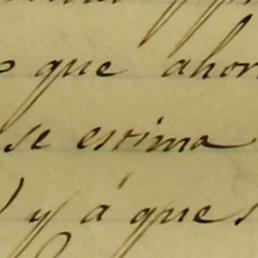 que ahor
se estima
y á que s